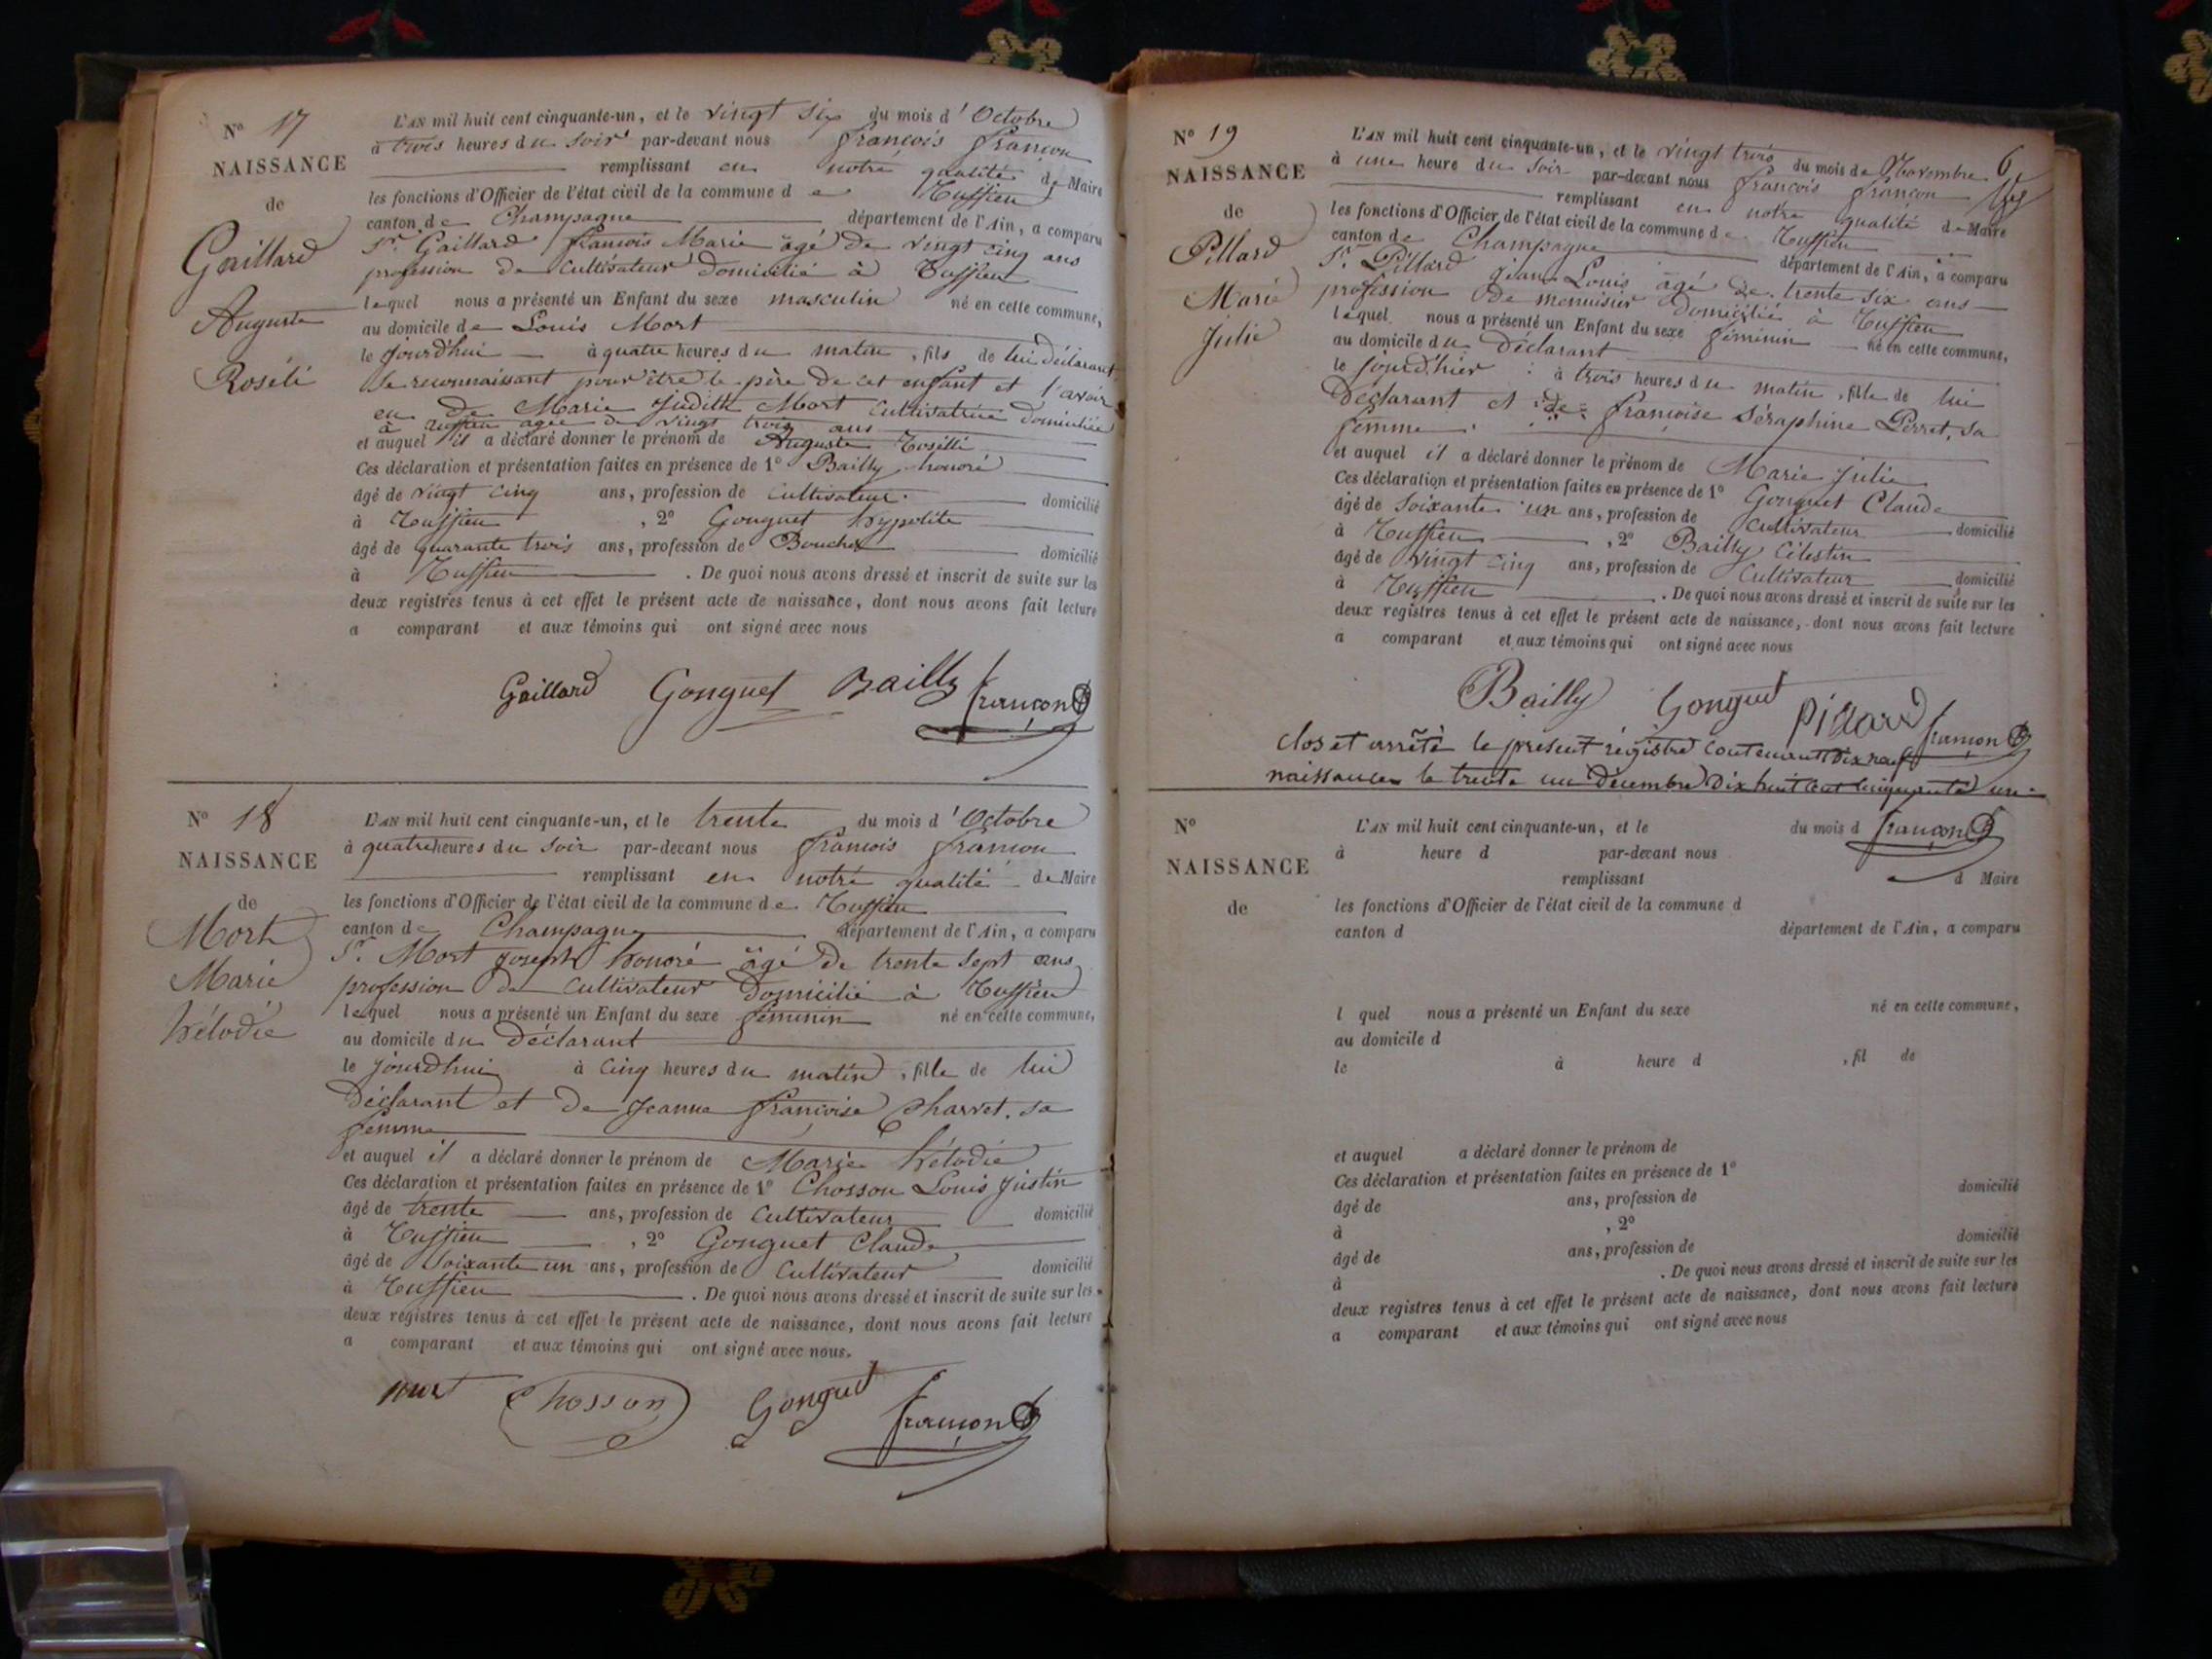 N° 17
NAISSANCE
de
Gaillard
Auguste
Roséli
L'AN mil huit cent cinquante-un, et le vingt six du mois d'Octobre
à trois heures du soir par-devant nous françois françon
remplissant en notre qualité de Maire
les fonctions d'Officier de l'état civil de la commune de
canton de Champagne département de l'Ain, a comparu
Sr. Gaillard francois Marie âgé de vingt cinq ans
profession de Cultivateur domicilié à
lequel nous a présenté un Enfant du sexe masculin né en cette commune,
au domicile de Louis Mort
le jourd'hui à quatre heures du matin, fils de lui déclarant
se reconnaissant pour être le père de cet enfant et l'avoir
eu de Marie Judith Mort Cultivatrice domiciliée
à agée de vingt trois ans
et auquel il a déclaré donner le prénom de Auguste
Ces déclaration et présentation faites en présence de 1° Bailly honoré
âgé de vingt cinq ans, profession de Cultivateur domicilié
à , 2° Gonguet hypolite
âgé de quarante trois ans, profession de Boucher domicilié
à . De quoi nous avons dressé et inscrit de suite sur les
deux registres tenus à cet effet le présent acte de naissance, dont nous avons fait lecture
a comparant et aux témoins qui ont signé avec nous
Gaillard Gonguet Bailly françon
N° 18
NAISSANCE
de
Mort
Marie
hélodie
L'AN mil huit cent cinquante-un, et le trente du mois d'Octobre
à quatre heures du soir par-devant nous francois françon
remplissant en notre qualité de Maire
les fonctions d'Officier de l'état civil de la commune de
canton de Champagne département de l'Ain, a comparu
Sr. Mort joseph honoré âgé de trente sept ans
profession de Cultivateur domicilié à
lequel nous a présenté un Enfant du sexe féminin né en cette commune,
au domicile du Déclarant
le jourd'hui à Cinq heures du matin, fille de lui
Déclarant et de Jeanne françoise Charvet, sa
femme
et auquel il a déclaré donner le prénom de Marie hélodie
Ces déclaration et présentation faites en présence de 1° Chosson Louis Justin
âgé de trente ans, profession de Cultivateur domicilié
à , 2° Gonguet Claude
âgé de soixante un ans, profession de Cultivateur domicilié
à . De quoi nous avons dressé et inscrit de suite sur les
deux registres tenus à cet effet le présent acte de naissance, dont nous avons fait lecture
a comparant et aux témoins qui ont signé avec nous.
mort Chosson Gonguet françon
N° 19
NAISSANCE
de
Pillard
Marie
Julie
L'AN mil huit cent cinquante-un, et le vingt trois du mois de Novembre
à une heure du soir par-devant nous françois françon
remplissant en notre qualité de Maire
les fonctions d'Officier de l'état civil de la commune de
canton de Champagne département de l'Ain, a comparu
Sr. Pillard jean Louis âgé de trente six ans
profession de menuisier domicilié à
lequel nous a présenté un Enfant du sexe féminin né en cette commune,
au domicile du Déclarant
le jourd'hier à trois heures du matin, fille de lui
Déclarant et de françoise Séraphine Perret, sa
femme
et auquel il a déclaré donner le prénom de Marie Julie
Ces déclaration et présentation faites en présence de 1° Gonguet Claude
âgé de soixante un ans, profession de Cultivateur domicilié
à , 2° Bailly Célestin
âgé de vingt cinq ans, profession de Cultivateur domicilié
à . De quoi nous avons dressé et inscrit de suite sur les
deux registres tenus à cet effet le présent acte de naissance, dont nous avons fait lecture
a comparant et aux témoins qui ont signé avec nous
Bailly Gonguet Pillard françon
clos et arrêté le present régistre contenant dix neuf
naissances le trente un Décembre Dix huit cent cinquante un.
françon
N°
NAISSANCE
de
L'AN mil huit cent cinquante-un, et le du mois d
à heure d par-devant nous
remplissant d Maire
les fonctions d'Officier de l'état civil de la commune d
canton d département de l'Ain, a comparu
l quel nous a présenté un Enfant du sexe né en cette commune,
au domicile d
le à heure d , fil de
et auquel a déclaré donner le prénom de
Ces déclaration et présentation faites en présence de 1°
âgé de ans, profession de domicilié
à , 2°
âgé de ans, profession de domicilié
à . De quoi nous avons dressé et inscrit de suite sur les
deux registres tenus à cet effet le présent acte de naissance, dont nous avons fait lecture
a comparant et aux témoins qui ont signé avec nous